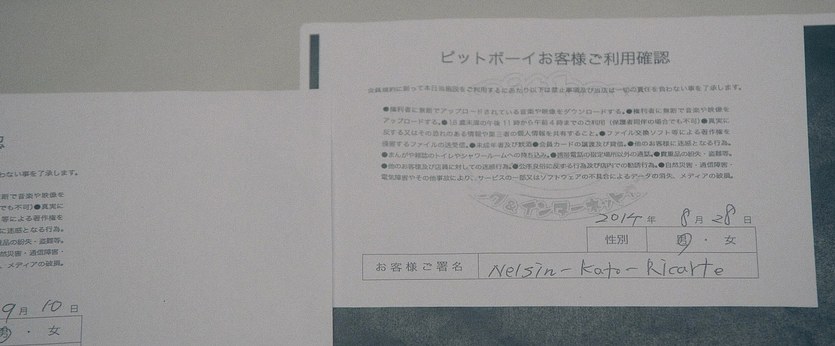 ピットボーイお客様ご利用確認
会員規約に則って本日当施設をご利用するにあたり以下は禁止事項及び当店は一切の責任を負わない事を了承します。
●権利者に無断でアップロードされている音楽や映像をダウンロードする。●権利者に無断で音楽や映像を
アップロードする。●18歳未満の午後11時から午前4時までのご利用(保護者同伴の場合でも不可)●真実に
反する又はその恐れのある情報や第三者の個人情報を共有すること。●ファイル交換ソフト等による著作権を
侵害するファイルの送受信。●未成年者及び飲酒●会員カードの譲渡及び貸借。●他のお客様に迷惑となる行為。
●まんがや雑誌のトイレやシャワールームへの持ち込み。●携帯電話の指定場所以外の通話。●貴重品の紛失・盗難等。
●他のお客様及び店員に対しての迷惑行為。●公序良俗に反する行為及び店内での勧誘行為。●自然災害・通信障害・
電気障害やその他事故により、サービスの一部又はソフトウェアの不具合によるデータの消失、メディアの破損。
&インターネット
2014年 8月28日
性別 男・女
お客様ご署名 Nelsin-Kato-Ricarte
わない事を了承します。
断で音楽や映像を
でも不可)●真実に
等による著作権を
に迷惑となる行為。
品の紛失・盗難等。
然災害・通信障害・
、メディアの破損。
9月10日
男・女